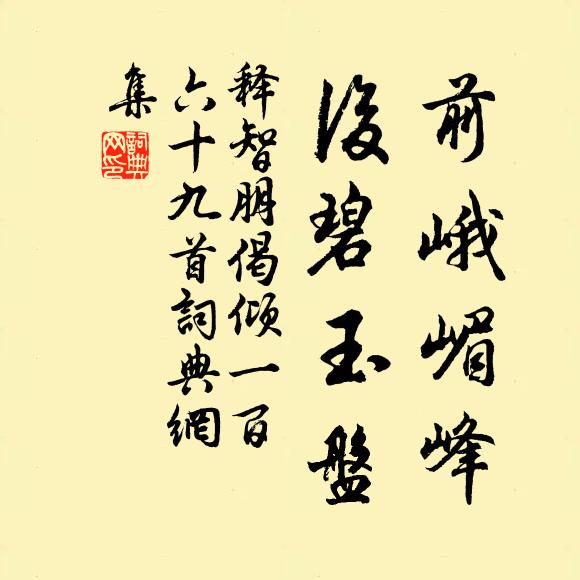 前峨嵋峰
後碧玉盤
释智朋偈倾一百
六十九首詞典網
集
詞典
网印